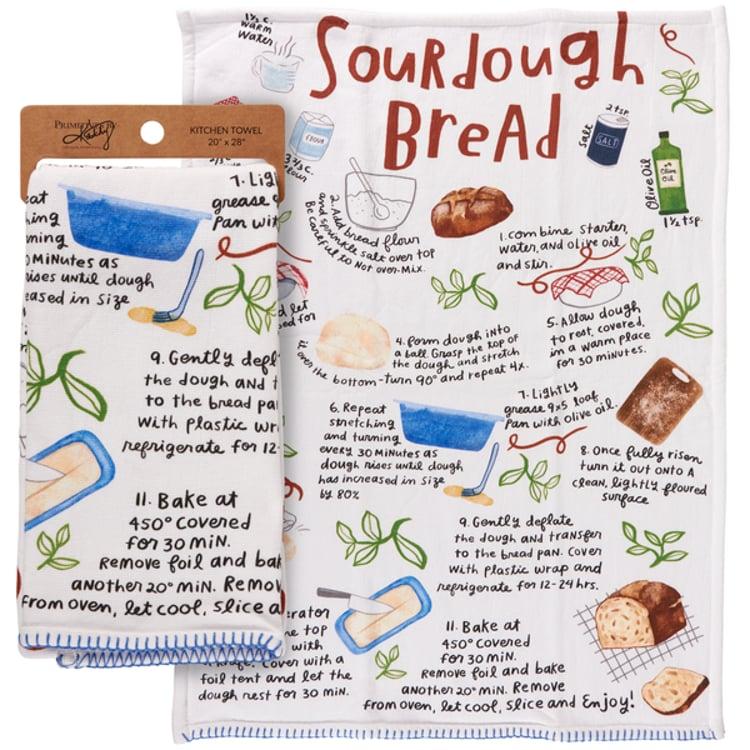 Sourdough
Bread
1½ c.
warm
water
3⅓ c.
flour
FLOUR
2 tsp
salt
SALT
Olive Oil
Olive
Oil
1½ tsp.
1. Combine starter,
water, and olive oil
and stir.
2. Add bread flour
and sprinkle salt over top
Be careful to Not over-Mix.
d let
ed for
4. Form dough into
a ball. Grasp the top of
the dough and stretch
it over the bottom-turn 90° and repeat 4x.
5. Allow dough
to rest, covered,
in a warm place
for 30 minutes.
6. Repeat
stretching
and turning
every 30 Minutes as
dough rises until dough
has increased in size
by 80%
7. Lightly
grease 9x5 loaf
Pan with olive oil.
8. Once fully risen
turn it out onto A
clean, lightly floured
surface
9. Gently deflate
the dough and transfer
to the bread pan. Cover
with plastic wrap and
refrigerate for 12-24 hrs.
erator
e top
with
Cover with a
foil tent and let the
dough rest for 30 min.
11. Bake at
450° covered
for 30 min.
Remove foil and bake
another 20° min. Remove
from oven, let cool, slice and Enjoy!
Kathy
KITCHEN TOWEL
20" x 28"
7. Lig
grease 9
Pan wit
eat
ing
ning
0 Minutes as
rises until dough
eased in Size
9. Gently defl
the dough and t
to the bread pa
With plastic wr
refrigerate for 12-
11. Bake at
450° covered
for 30 min.
Remove foil and bak
another 20° min. Remov
from oven, let cool, slice a